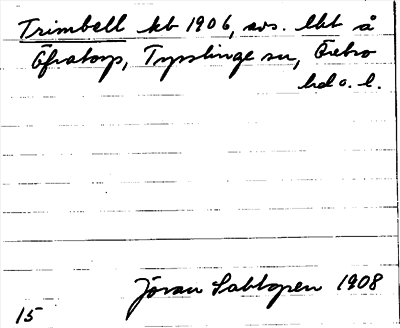 Trimbell kb 1906, avs. lht å
Öfvatorp, Tysslinge sn, Örebro
hd o. l.
Jöran Sahlgren 1908
15